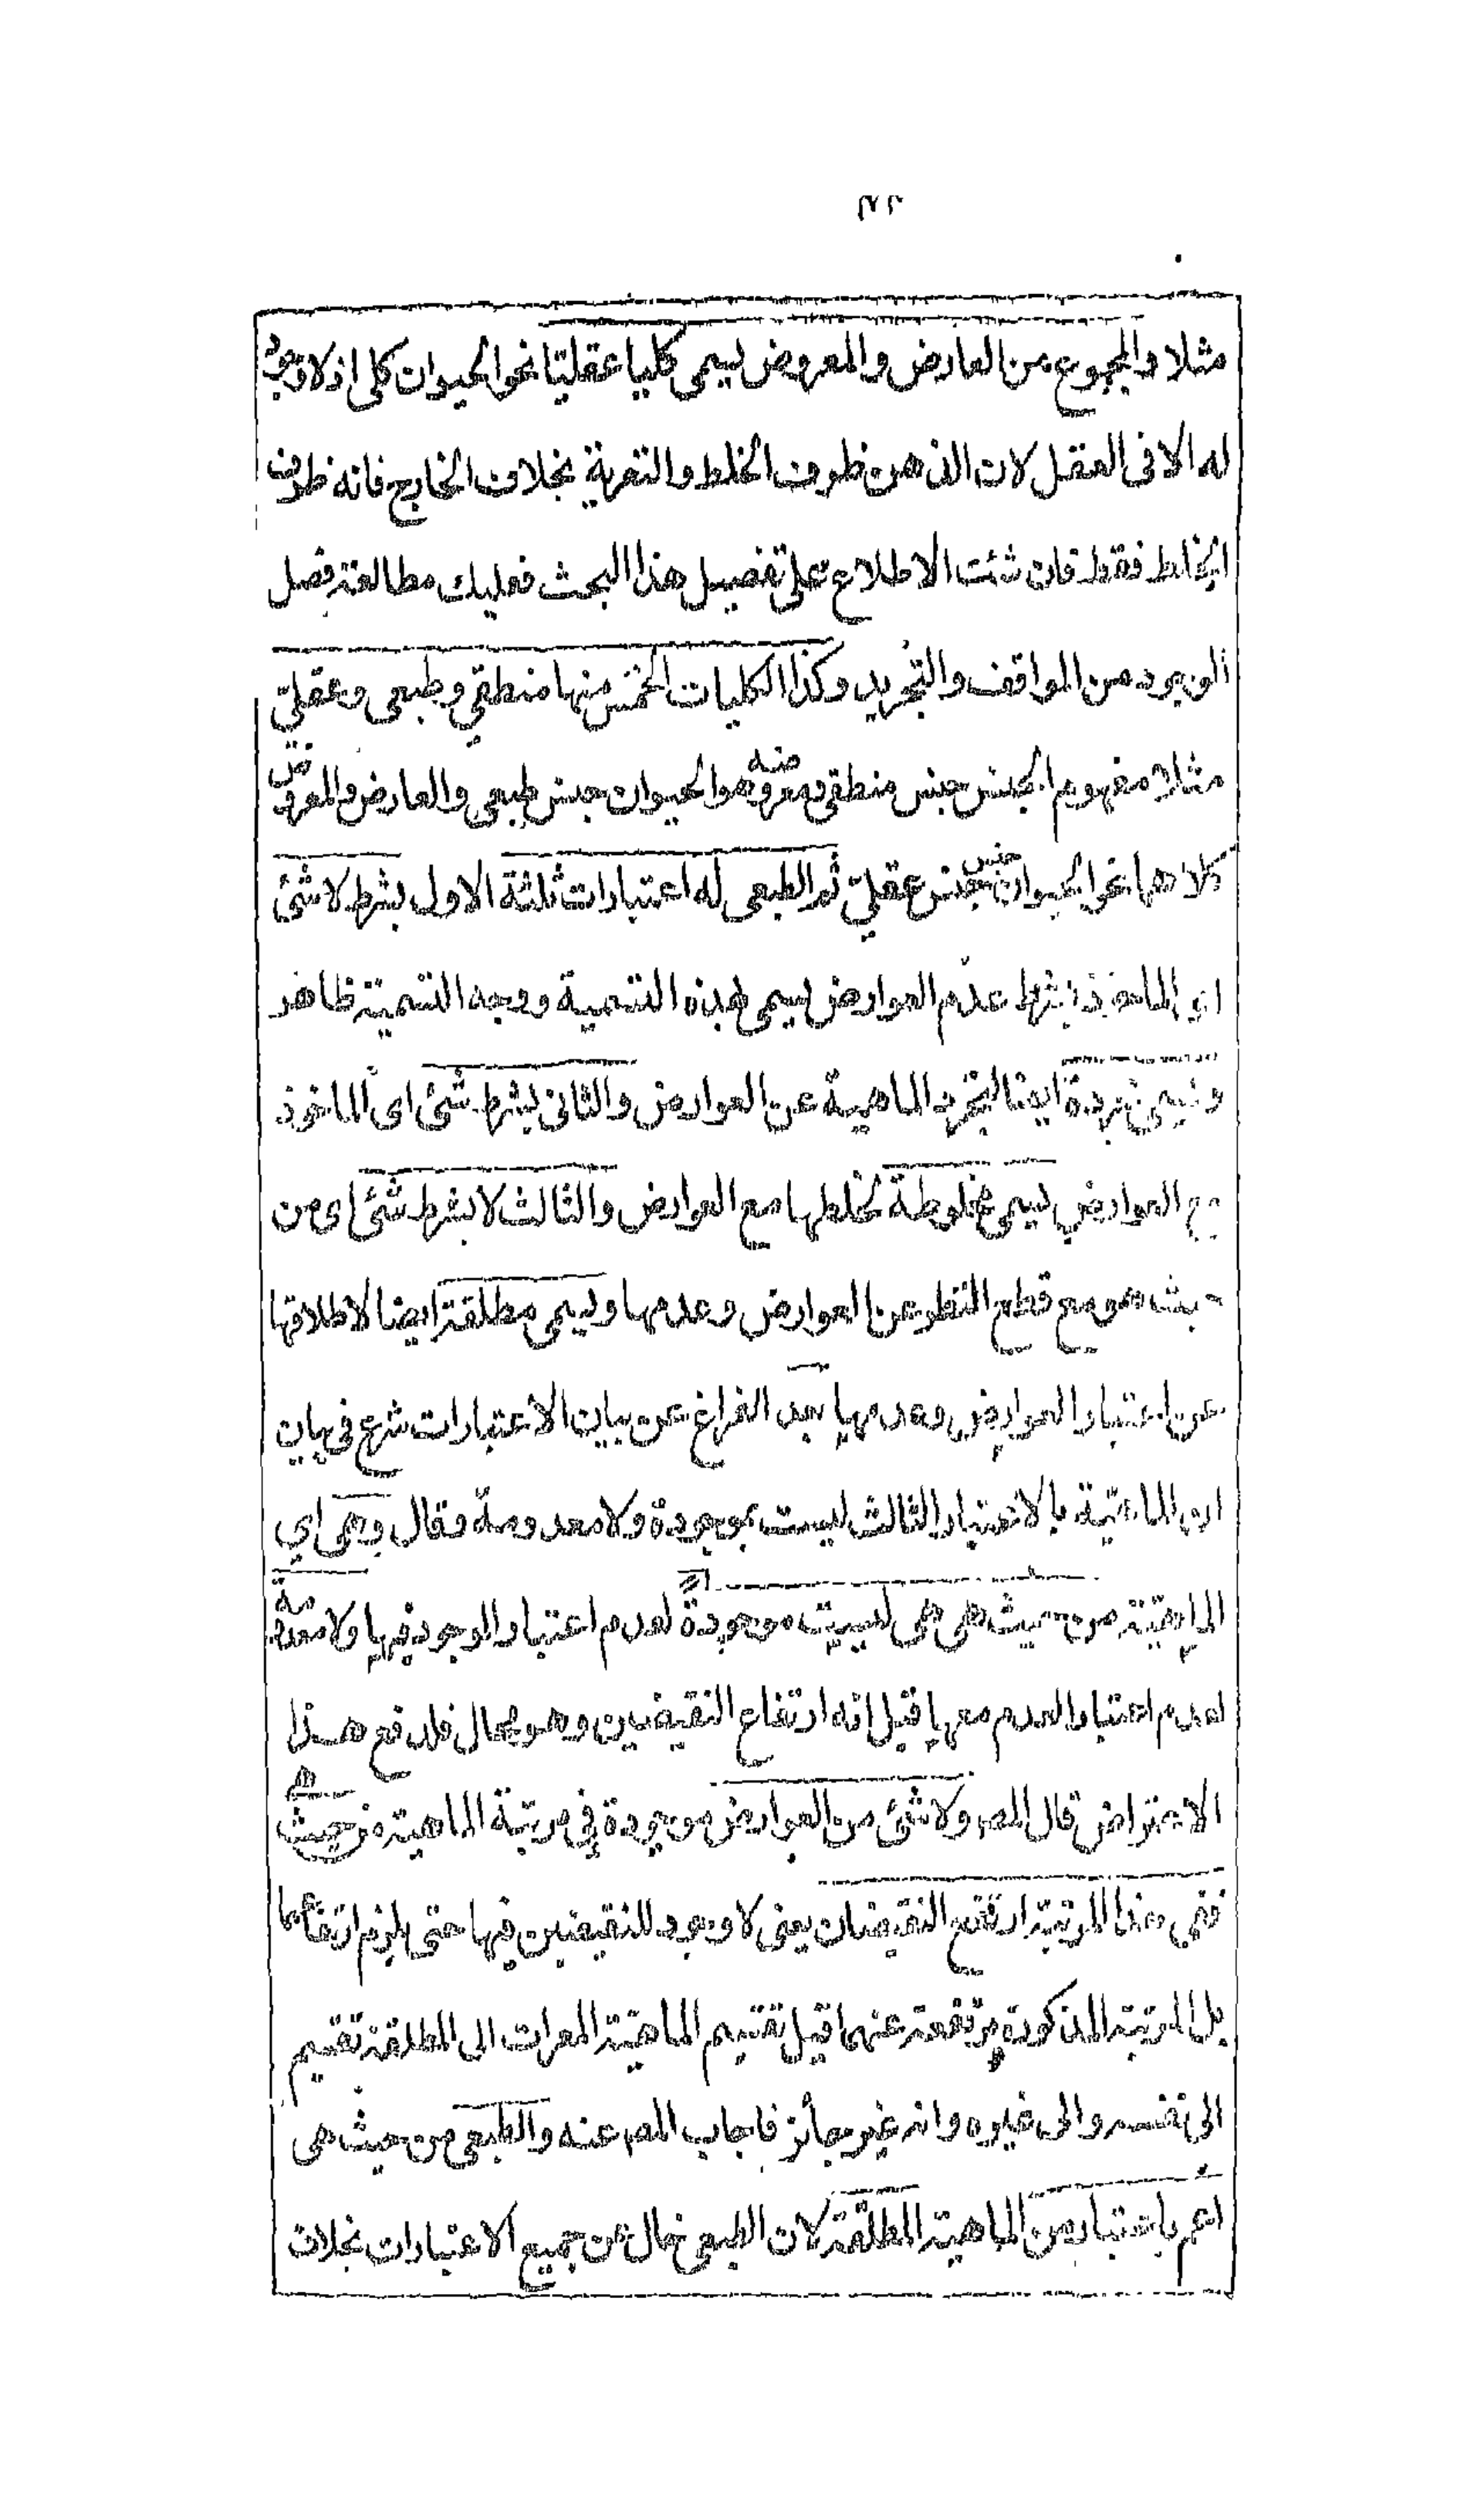 مثلا والمجموع من العارض والمعروض يسمى كليا عقليّا نحو الحيوان كلى اذ لا وجود
له الا فى العقل لان الذهن ظرف الخلط والتعرية بخلاف الخارج فانه ظرف
الخلط فقط فان شئت الاطلاع على تفصيل هذا البحث فعليك مطالعة فصل
الوجود من المواقف والتجريد وكذا الكليات الخمس منها منطقي وطبعى وعقلىّ
مثلا مفهوم الجنس جنس منطقى ومعروضه وهو الحيوان جنس طبعى والعارض والمعروض
كلاهما نحو الحيوان جنس جنس عقلىّ ثم الطبعى له اعتبارات ثلثة الاول بشرط لا شئ
اى الماخوذ بشرط عدم العوارض يسمى بهذه التسمية ووجه التسمية ظاهر
وتسمى مجردة ايضا لتجرد الماهية عن العوارض والثانى بشرط شئ اى الماخوذ
مع العوارض يسمى مخلوطة لخلطها مع العوارض والثالث لا بشرط شئ اى من
حيث هو مع قطع النظر عن العوارض وعدمها ويسمى مطلقة ايضا لاطلاقها
عن اعتبار العوارض وعدمها بعد الفراغ عن بيان الاعتبارات شرع فى بيان
ان الماهيّة بالاعتبار الثالث ليست بموجودة ولا معدومة فقال وهى اي
الماهيّة من حيث هى هى ليست موجودة لعدم اعتبار الوجود فيها ولا معدومة
لعدم اعتبار العدم معها قيل انه ارتفاع النقيضين وهو محال فلدفع هذا
الاعتراض قال المصـ ولا شئ من العوارض موجودة في مرتبة الماهية من حيث هى
ففى هذا المرتبة ارتفع النقيضان يعنى لا وجود للنقيضين فيها حتى يلزم ارتفاعهما
بل المرتبة المذكورة مرتفعة عنهما قيل تقسيم الماهيّة المعرات الى المطلقة تقسيم
الى نفسه والى غيره وانه غير جائز فاجاب المصـ عنه والطبعى من حيث هى
اعم باعتبار من الماهية المطلقة لان الطبعى خال عن جميع الاعتبارات بخلاف